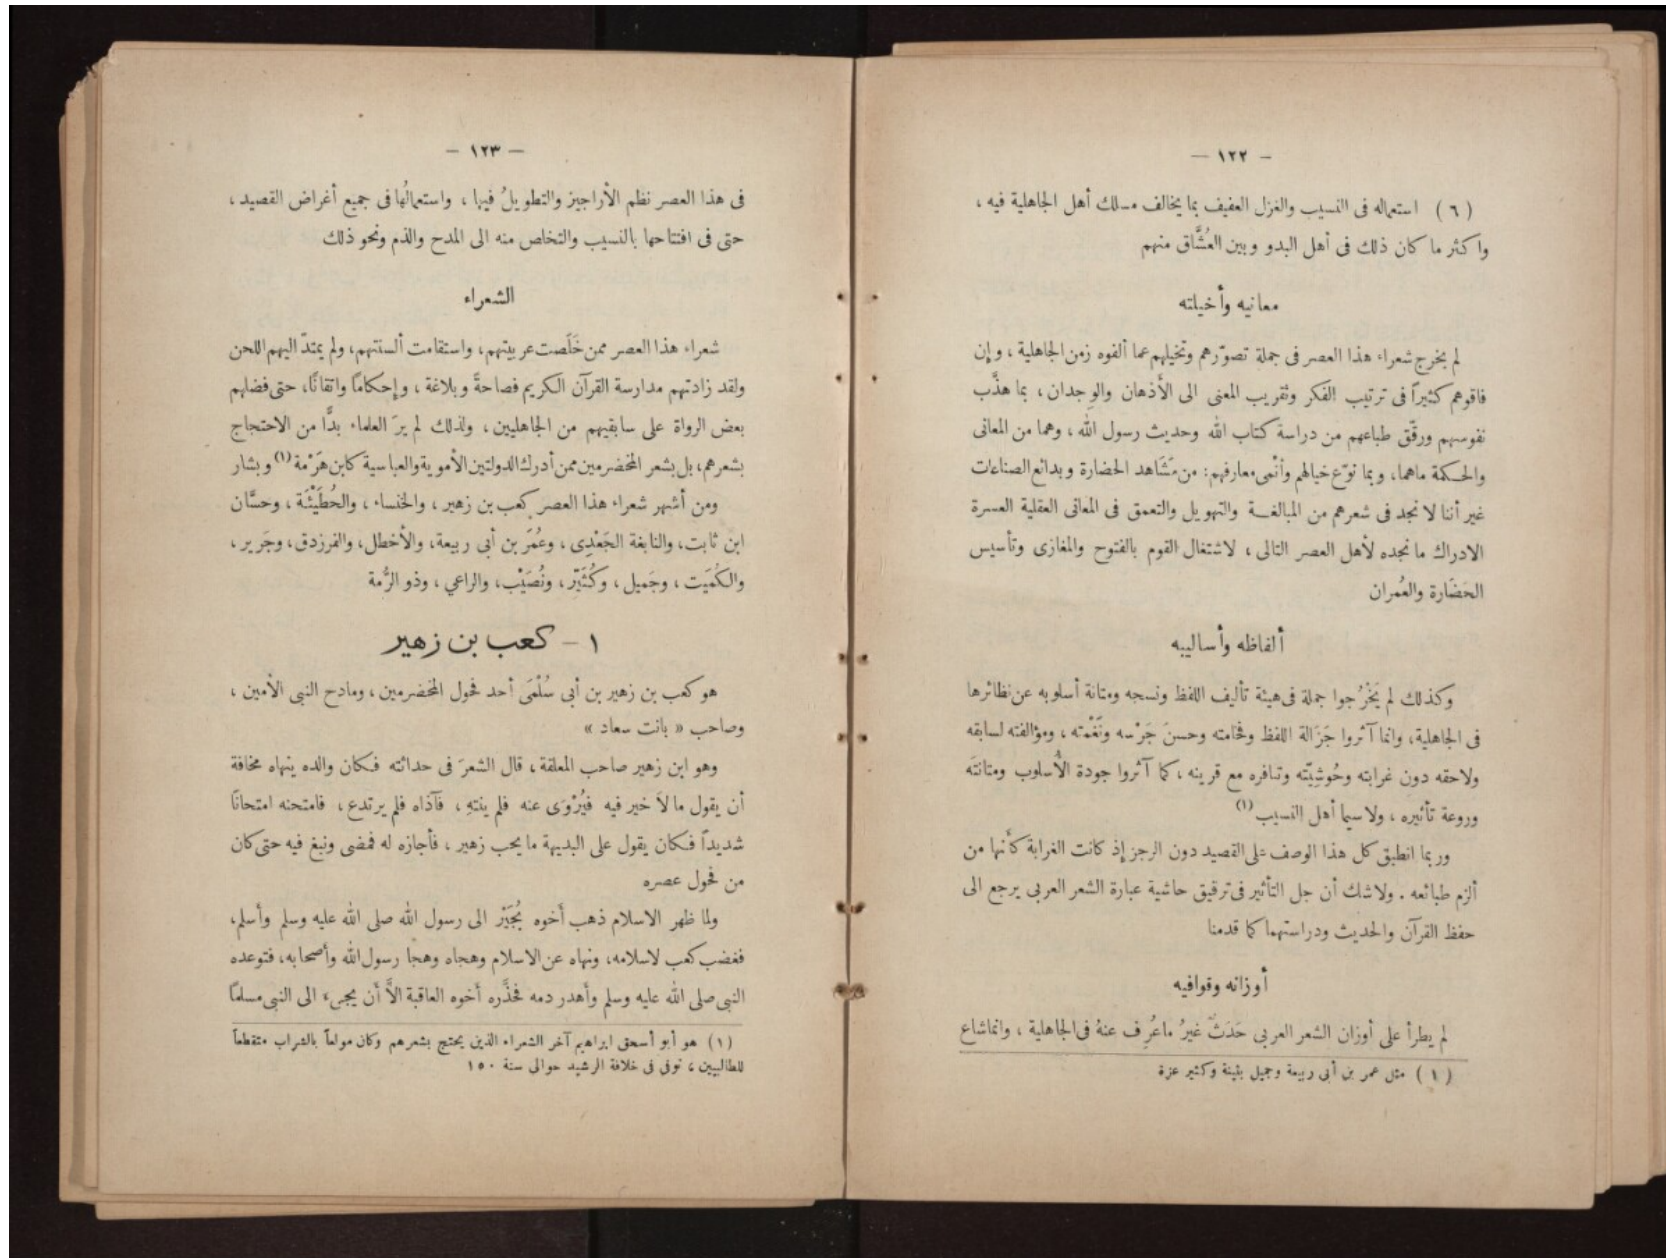 — ١٢٢ —
( ٦ ) استعماله فى النسيب والغزل العفيف بما يخالف مسلك أهل الجاهلية فيه ،
واكثر ما كان ذلك فى أهل البدو وبين العُشَّاق منهم
معانيه وأخيلته
لم يخرج شعراء هذا العصر فى جملة تصوّرهم وتخيلهم عما ألفوه زمن الجاهلية ، وإن
فاقوهم كثيراً فى ترتيب الفكر وتقريب المعنى الى الأذهان والوِجدان ، بما هذَّب
نفوسهم ورقّق طباعهم من دراسة كتاب الله وحديث رسول الله ، وهما من المعانى
والحكمة ماهما، وبما نوّع خيالهم وأنْمى معارفهم: من مَشَاهد الحضارة وبدائع الصناعات
غير أننا لا نجد فى شعرهم من المبالغـة والتهويل والتعمق فى المعانى العقلية العسرة
الادراك ما نجده لأهل العصر التالى ، لاشتغال القوم بالفتوح والمغازى وتأسيس
الحَضَارة والعُمران
ألفاظه وأساليبه
وكذلك لم يَخْرُجوا جملة فى هيئة تأليف اللفظ ونسجه ومتانة أسلوبه عن نظائرها
فى الجاهلية، وانما آثروا جَزَالة اللفظ وفخامته وحسنَ جَرْسه ونَغْمته ، ومؤالفته لسابقه
ولاحقه دون غرابته وحُوشِيّته وتنافره مع قرينه ، كما آثروا جودة الأُسلوب ومتانتَه
وروعة تأثيرَه ، ولاسيما أهل النسيب (١)
وربما انطبق كل هذا الوصف على القصيد دون الرجز إذ كانت الغرابة كأنها من
ألزم طبائعه . ولاشك أن جل التأثير فى ترقيق حاشية عبارة الشعر العربى يرجع الى
حفظ القرآن والحديث ودراستهما كما قدمنا
أوزانه وقوافيه
لم يطرأ على أوزان الشعر العربى حَدَثٌ غيرُ ماعُرِف عنهُ فى الجاهلية ، وانماشاع
( ١ ) مثل عمر بن أبى ربيعة وجميل بثينة وكثير عزة
— ١٢٣ —
فى هذا العصر نظم الأراجيز والتطويلُ فيها ، واستعمالُها فى جميع أغراض القصيد ،
حتى فى افتتاحها بالنسيب والتخلص منه الى المدح والذم ونحو ذلك
الشعراء
شعراء هذا العصر ممن خَلَصت عربيتهم، واستقامت ألسنتهم، ولم يمتدّ اليهم اللحن
ولقد زادتهم مدارسة القرآن الكريم فصاحةً وبلاغة ، وإحكامًا واتقانًا، حتى فضلهم
بعض الرواة على سابقيهم من الجاهليين ، ولذلك لم يرَ العلماء بدًّا من الاحتجاج
بشعرهم، بل بشعر المخضرمين ممن أدرك الدولتين الأموية والعباسية كابن هَرْمة (١) وبشار
ومن أشهر شعراء هذا العصر كعب بن زهير ، والخنساء ، والحُطَيْئَة ، وحسَّان
ابن ثابت، والنابغة الجَعْدِى ، وعُمَر بن أبى ربيعة، والأخطل، والفرزدق، وجَرير ،
والكُمَيَت ، وجَميل ، وكُثَيِّر ، ونُصَيْب، والراعي ، وذو الرُّمة
١ – كعب بن زهير
هو كعب بن زهير بن أبى سُلْمَى أحد فحول المخضرمين ، ومادح النبى الأمين ،
وصاحب « بانت سعاد »
وهو ابن زهير صاحب المعلقة ، قال الشعرَ فى حداثته فكان والده ينهاه مخافة
أن يقول مالاَ خير فيه فيُرْوَى عنه فلم ينتهِ ، فآذاه فلم يرتدع ، فامتحنه امتحانًا
شديداً فكان يقول على البديهة ما يحب زهير ، فأجازه له فمضى ونبغ فيه حتى كان
من فحول عصره
ولما ظهر الاسلام ذهب أخوه بُجَيْر الى رسول الله صلى الله عليه وسلم وأسلم،
فغضب كعب لاسلامه، ونهاه عن الاسلام وهجاه وهجا رسول الله وأصحابه، فتوعده
النبى صلى الله عليه وسلم وأهدر دمه فحذَّره أخوه العاقبة الاَّ أن يجىء الى النبى مسلمًا
( ١ ) هو أبو أسحق ابراهيم آخر الشعراء الذين يحتج بشعرهم وكان مولعاً بالشراب متقطعاً
للطالبيين ، توفى فى خلافة الرشيد حوالى سنة ١٥٠